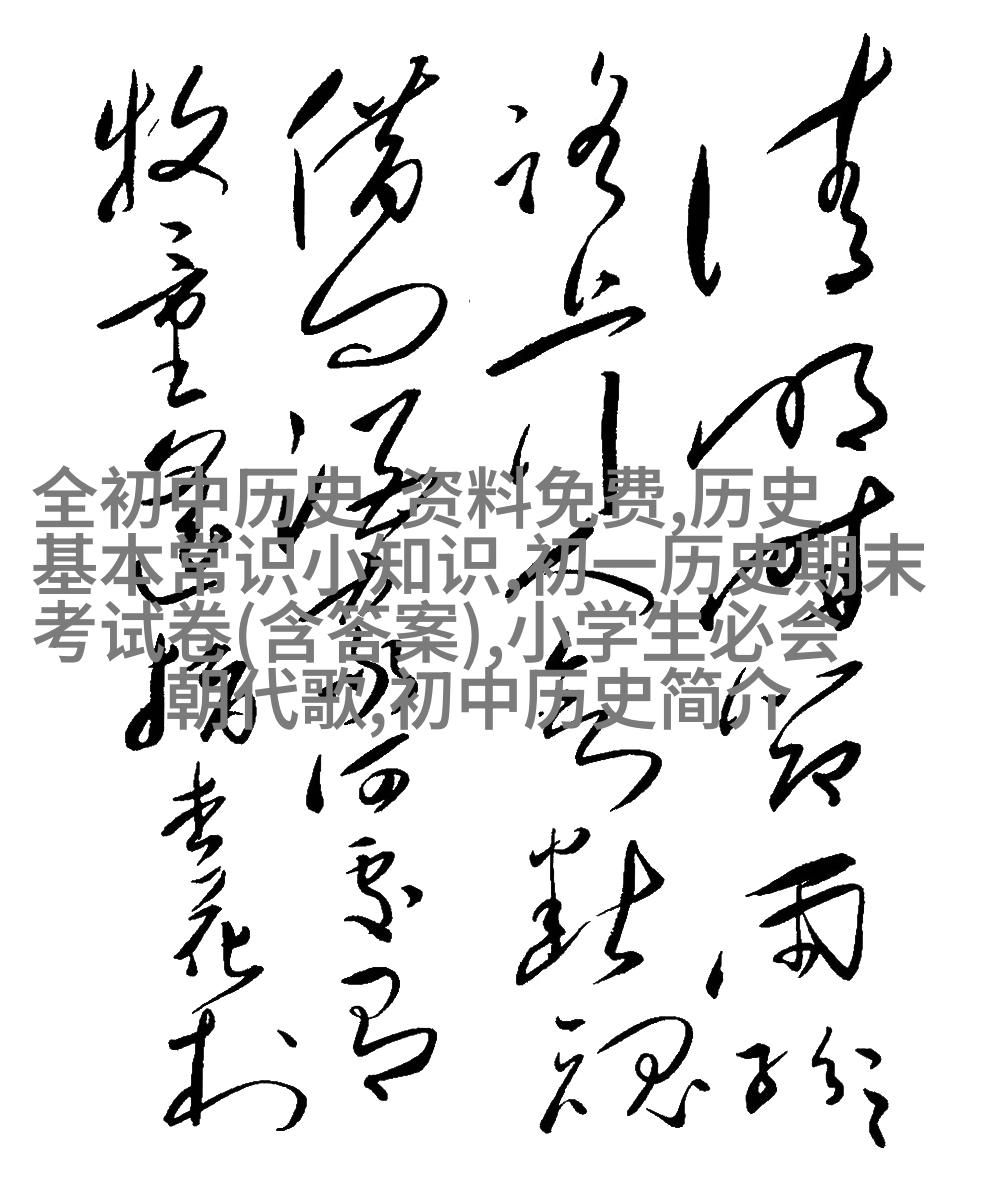 清明时節雨紛紛
路上行人欲断魂
借问酒家何处有
牧童遥指杏花村
全初中历史 资料免费,历史
基本常识小知识,初一历史期末
考试卷(含答案),小学生必会
朝代歌,初中历史简介